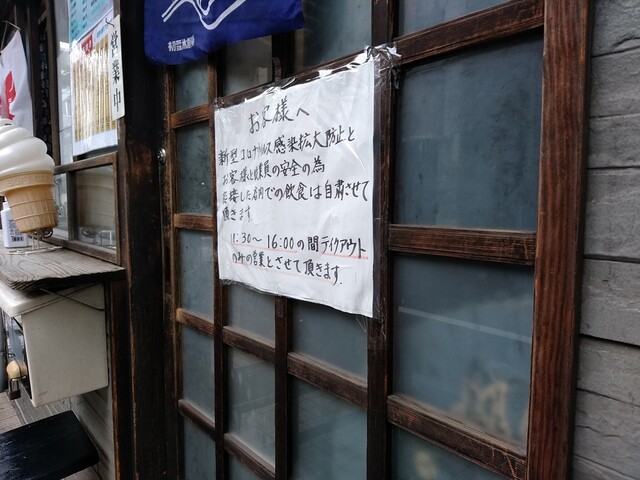 営業中
お客様へ
新型コロナウィルス感染拡大防止と
お客様と従業員の安全の為
密接した店内での飲食は自粛させて
頂きます。
11:30～16:00の間テイクアウト
のみの営業とさせて頂きます.